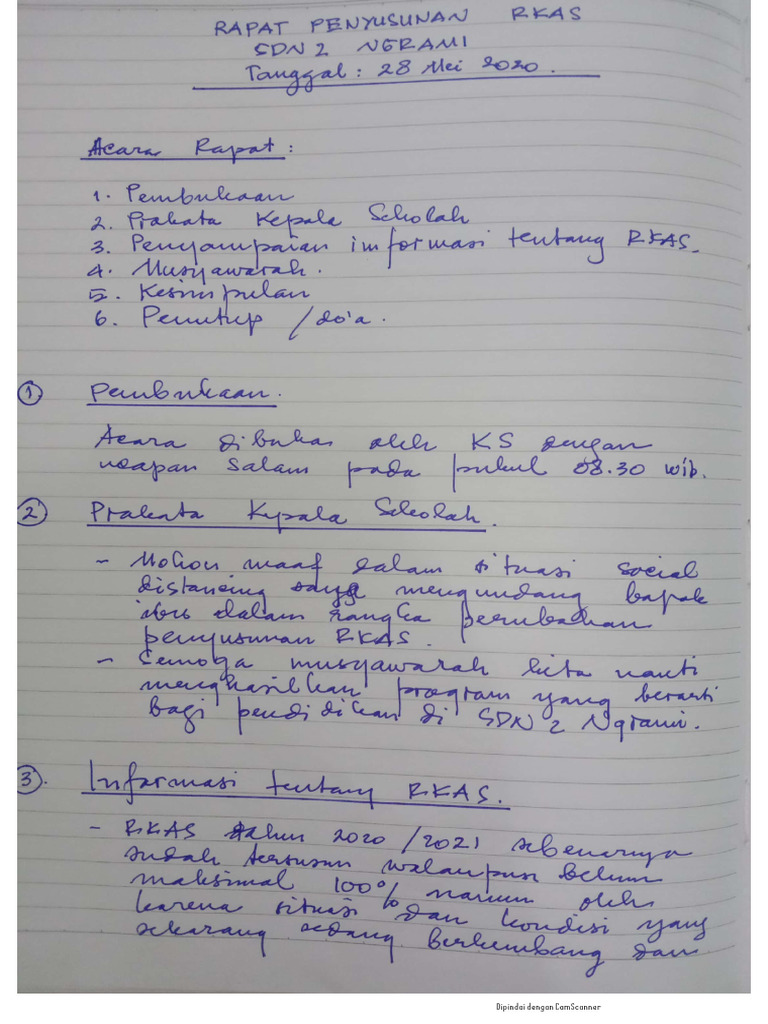 RAPAT PENYUSUNAN RKAS
SDN 2 NGRAMI
Tanggal : 28 Mei 2020.
Acara Rapat :
1. Pembukaan
2. Prakata Kepala Sekolah
3. Penyampaian informasi tentang RKAS.
4. Musyawarah.
5. Kesimpulan
6. Penutup / do'a.
1 Pembukaan.
Acara dibuka oleh KS dengan
ucapan salam pada pukul 08.30 wib.
2 Prakata Kepala Sekolah.
- Mohon maaf dalam situasi social
distancing saya mengundang bapak
ibu dalam rangka perubahan
penyusunan RKAS.
- Semoga musyawarah kita nanti
menghasilkan program yang berarti
bagi pendidikan di SDN 2 Ngrami.
3. Informasi tentang RKAS.
- RKAS tahun 2020/2021 sebenarnya
sudah tersusun walaupun belum
maksimal 100% namun oleh
karena situasi dan kondisi yang
sekarang sedang berkembang dan
Dipindai dengan CamScanner